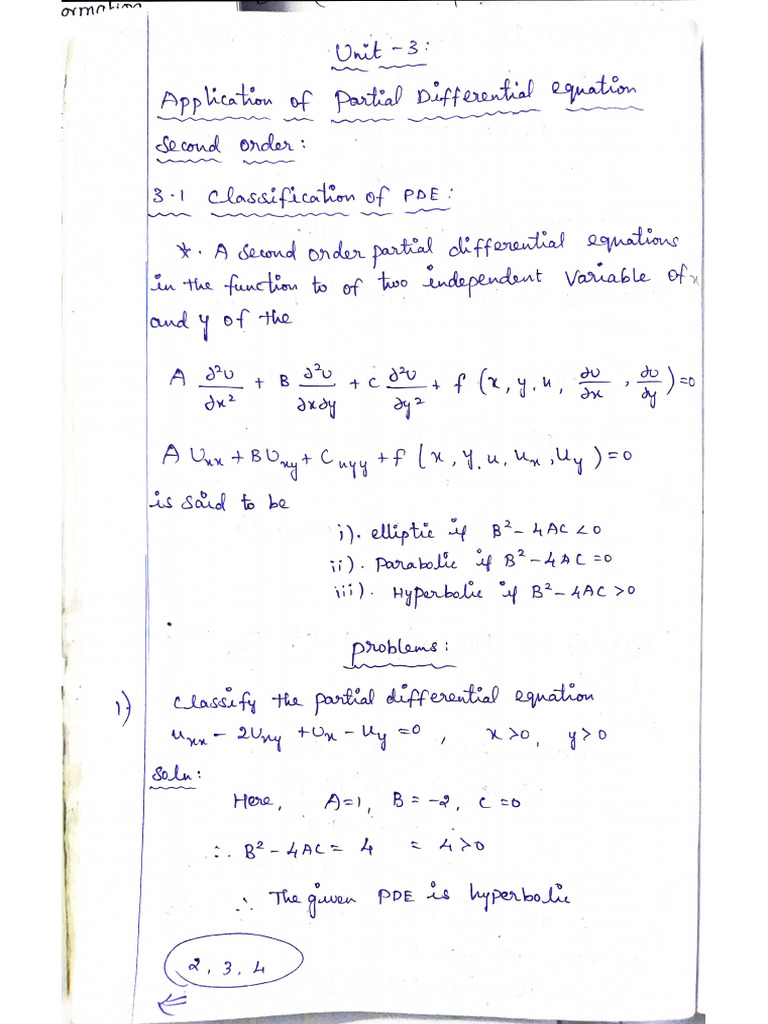 ormation
Unit - 3:
Application of Partial Differential equation
Second order:
3.1 Classification of PDE:
*. A second order partial differential equations
in the function to of two independent variable of x
and y of the
A ∂²u/∂x² + B ∂²u/∂x∂y + C ∂²u/∂y² + f (x, y, u, ∂u/∂x, ∂u/∂y) = 0
A Uxx + B Uxy + C uyy + f (x, y, u, Ux, Uy) = 0
is said to be
i). elliptic if B² - 4AC < 0
ii). Parabolic if B² - 4AC = 0
iii). Hyperbolic if B² - 4AC > 0
Problems:
1) Classify the partial differential equation
uxx - 2Uxy + Ux - Uy = 0, x > 0, y > 0
Soln:
Here, A = 1, B = -2, C = 0
∴ B² - 4AC = 4 = 4 > 0
∴ The given PDE is hyperbolic
2, 3, 4
⇐